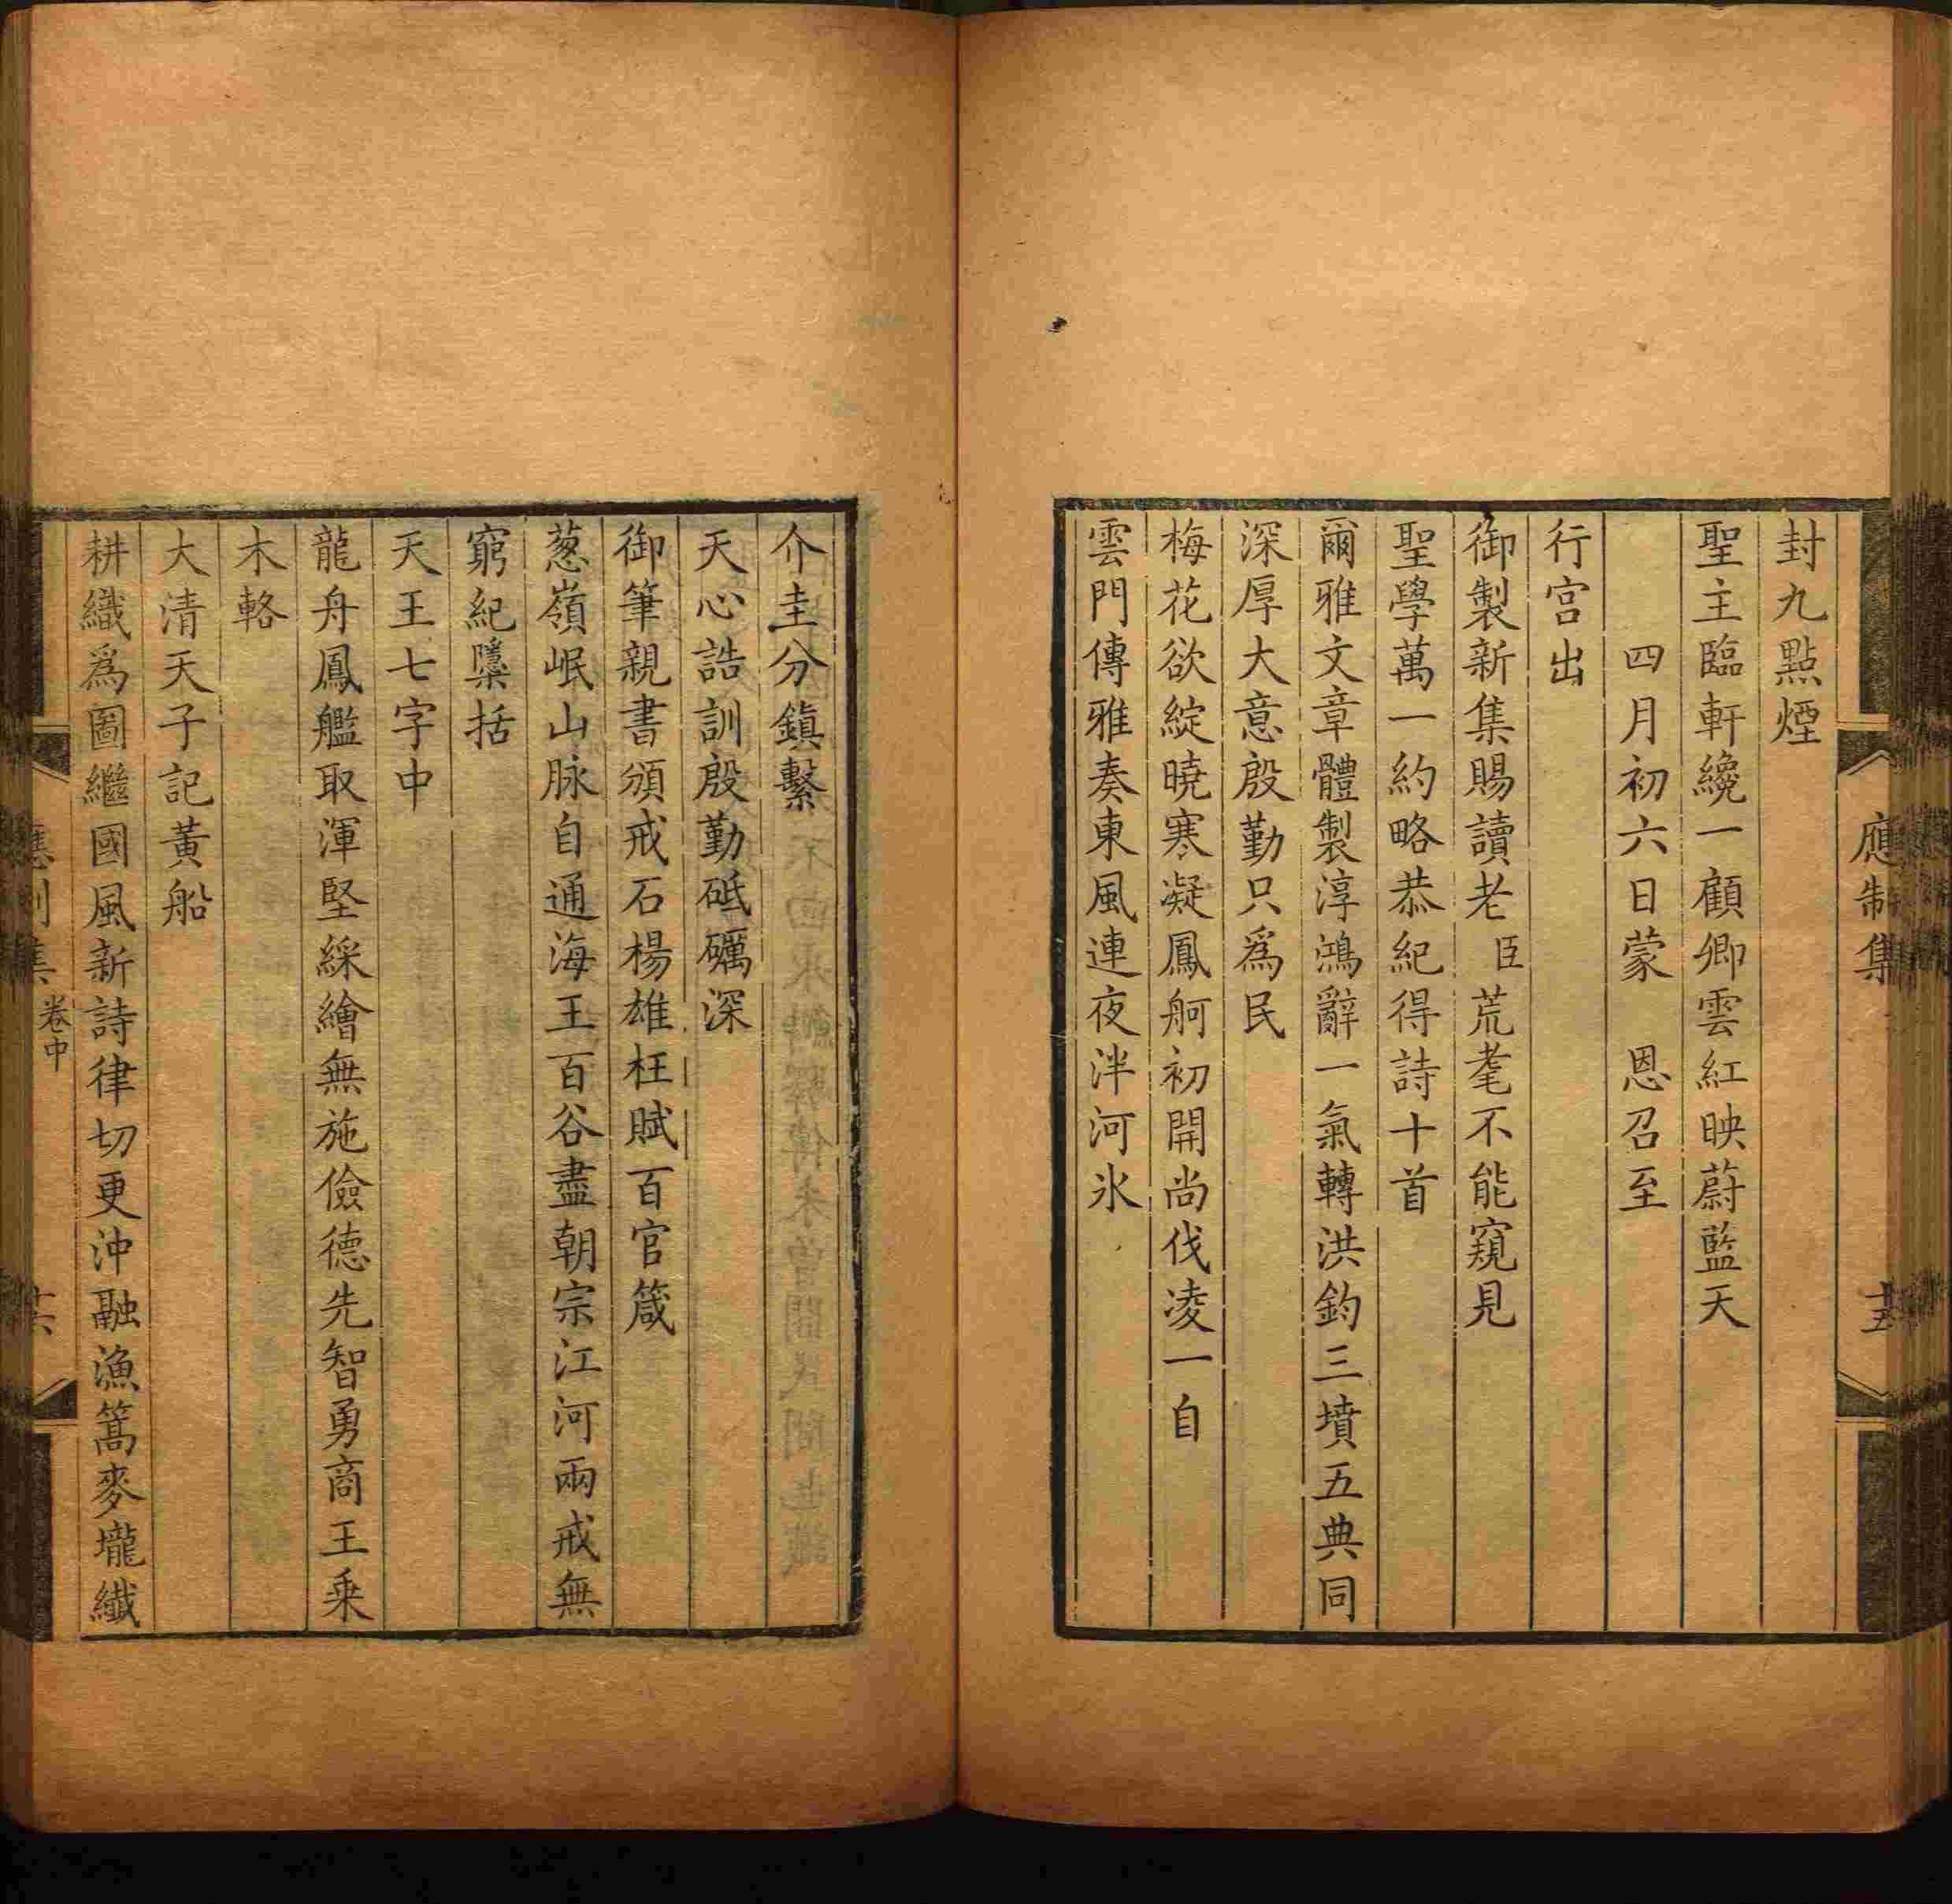 應制集
十五
封九點煙
聖主臨軒纔一顧卿雲紅映蔚監天
四月初六日蒙　恩召至
行宮出
御製新集賜讀老臣荒耄不能窺見
聖學萬一約略恭紀得詩十首
爾雅文章體製淳鴻辭一氣轉洪鈞三墳五典同
深厚大意殷勤只為民
梅花欲綻曉寒凝鳳舸初開尚伐凌一自
雲門傳雅奏東風連夜泮河氷
介圭分鎮繫
天心誥訓殷勤砥礪深
御筆親書頒戒石楊雄枉賦百官箴
葱嶺岷山脉自通海王百谷盡朝宗江河兩戒無
窮紀檃括
天王七字中
龍舟鳳艦取渾堅綵繪無施儉德先智勇商王乘
木輅
大清天子記黃船
耕織為圖繼國風新詩律切更沖融漁篙麥壠纖
應制集
卷中
十六